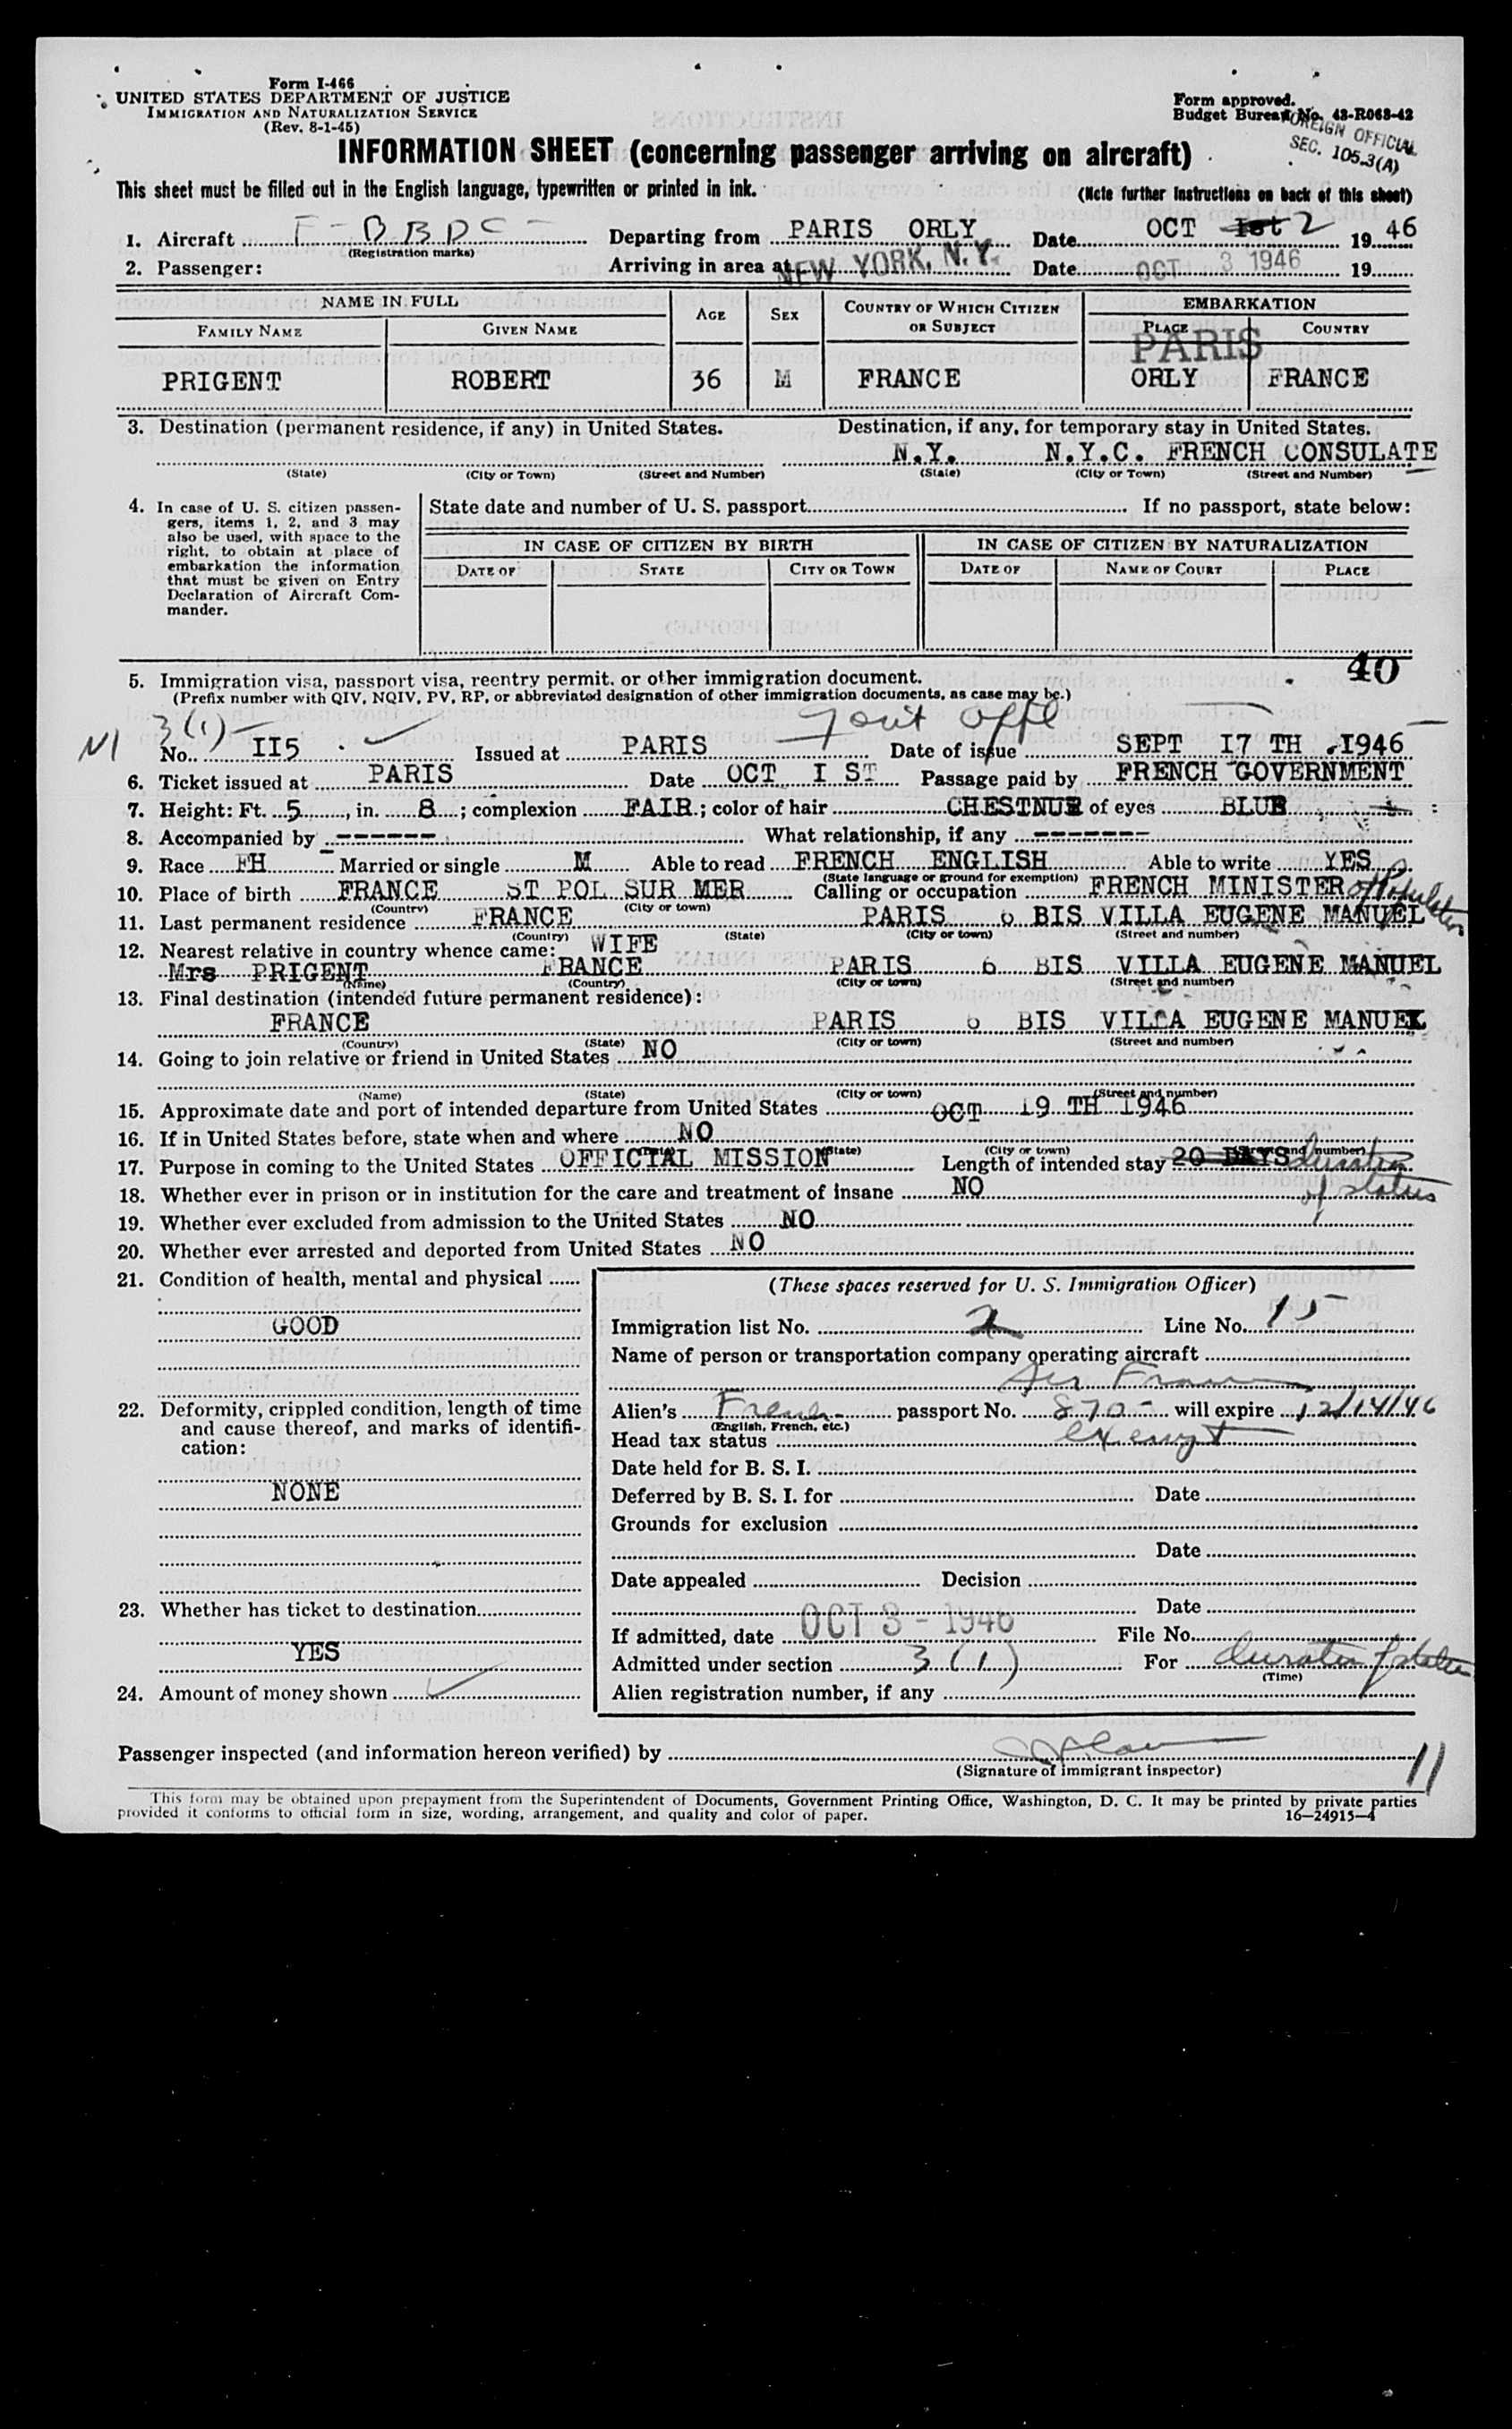 Form I-466
UNITED STATES DEPARTMENT OF JUSTICE
IMMIGRATION AND NATURALIZATION SERVICE
(Rev. 8-1-45)
Form approved.
Budget Bureau No. 43-R063-42
FOREIGN OFFICIAL
SEC. 105.3(A)
INFORMATION SHEET (concerning passenger arriving on aircraft)
This sheet must be filled out in the English language, typewritten or printed in ink. (Note further instructions on back of this sheet)
1. Aircraft F-BBDC Departing from PARIS ORLY Date OCT 1st 2 1946
(Registration marks)
2. Passenger: Arriving in area at NEW YORK, N.Y. Date OCT 3 1946 19
NAME IN FULL AGE SEX COUNTRY OF WHICH CITIZEN OR SUBJECT EMBARKATION
FAMILY NAME GIVEN NAME PLACE COUNTRY
PARIS
PRIGENT ROBERT 36 M FRANCE ORLY FRANCE
3. Destination (permanent residence, if any) in United States. Destination, if any, for temporary stay in United States.
N.Y. N.Y.C. FRENCH CONSULATE
(State) (City or Town) (Street and Number) (State) (City or Town) (Street and Number)
4. In case of U. S. citizen passengers, items 1, 2, and 3 may also be used, with space to the right, to obtain at place of embarkation the information that must be given on Entry Declaration of Aircraft Commander.
State date and number of U. S. passport If no passport, state below:
IN CASE OF CITIZEN BY BIRTH IN CASE OF CITIZEN BY NATURALIZATION
DATE OF STATE CITY OR TOWN DATE OF NAME OF COURT PLACE
40
5. Immigration visa, passport visa, reentry permit, or other immigration document.
(Prefix number with QIV, NQIV, PV, RP, or abbreviated designation of other immigration documents, as case may be.)
3(1) Govt offl
No. II5 Issued at PARIS Date of issue SEPT I7 TH .I946
6. Ticket issued at PARIS Date OCT I ST Passage paid by FRENCH GOVERNMENT
7. Height: Ft. 5, in. 8; complexion FAIR; color of hair CHESTNUT of eyes BLUE
8. Accompanied by ------- What relationship, if any --------
9. Race FH Married or single M Able to read FRENCH ENGLISH Able to write YES
(State language or ground for exemption)
10. Place of birth FRANCE ST POL SUR MER Calling or occupation FRENCH MINISTER of Population
(Country) (City or town)
11. Last permanent residence FRANCE PARIS 6 BIS VILLA EUGENE MANUEL
(Country) (State) (City or town) (Street and number)
12. Nearest relative in country whence came: WIFE
Mrs PRIGENT FRANCE PARIS 6 BIS VILLA EUGENE MANUEL
(Name) (Country) (City or town) (Street and number)
13. Final destination (intended future permanent residence):
FRANCE PARIS 6 BIS VILLA EUGENE MANUEL
(Country) (State) (City or town) (Street and number)
14. Going to join relative or friend in United States NO
(Name) (State) (City or town) (Street and number)
15. Approximate date and port of intended departure from United States OCT 19 TH 1946
16. If in United States before, state when and where NO
(State) (City or town) (Street and number)
17. Purpose in coming to the United States OFFICIAL MISSION Length of intended stay 20 DAYS duration
of status
18. Whether ever in prison or in institution for the care and treatment of insane NO
19. Whether ever excluded from admission to the United States NO
20. Whether ever arrested and deported from United States NO
21. Condition of health, mental and physical
GOOD
22. Deformity, crippled condition, length of time and cause thereof, and marks of identification:
NONE
23. Whether has ticket to destination
YES
24. Amount of money shown
(These spaces reserved for U. S. Immigration Officer)
Immigration list No. 2 Line No. 15
Name of person or transportation company operating aircraft
Air France
Alien's French passport No. 870 will expire 12/14/46
(English, French, etc.)
Head tax status exempt
Date held for B. S. I.
Deferred by B. S. I. for Date
Grounds for exclusion
Date
Date appealed Decision
Date
If admitted, date OCT 3 - 1946 File No.
Admitted under section 3(1) For duration of status
(Time)
Alien registration number, if any
Passenger inspected (and information hereon verified) by
(Signature of immigrant inspector)
11
This form may be obtained upon prepayment from the Superintendent of Documents, Government Printing Office, Washington, D. C. It may be printed by private parties
provided it conforms to official form in size, wording, arrangement, and quality and color of paper. 16—24915-4